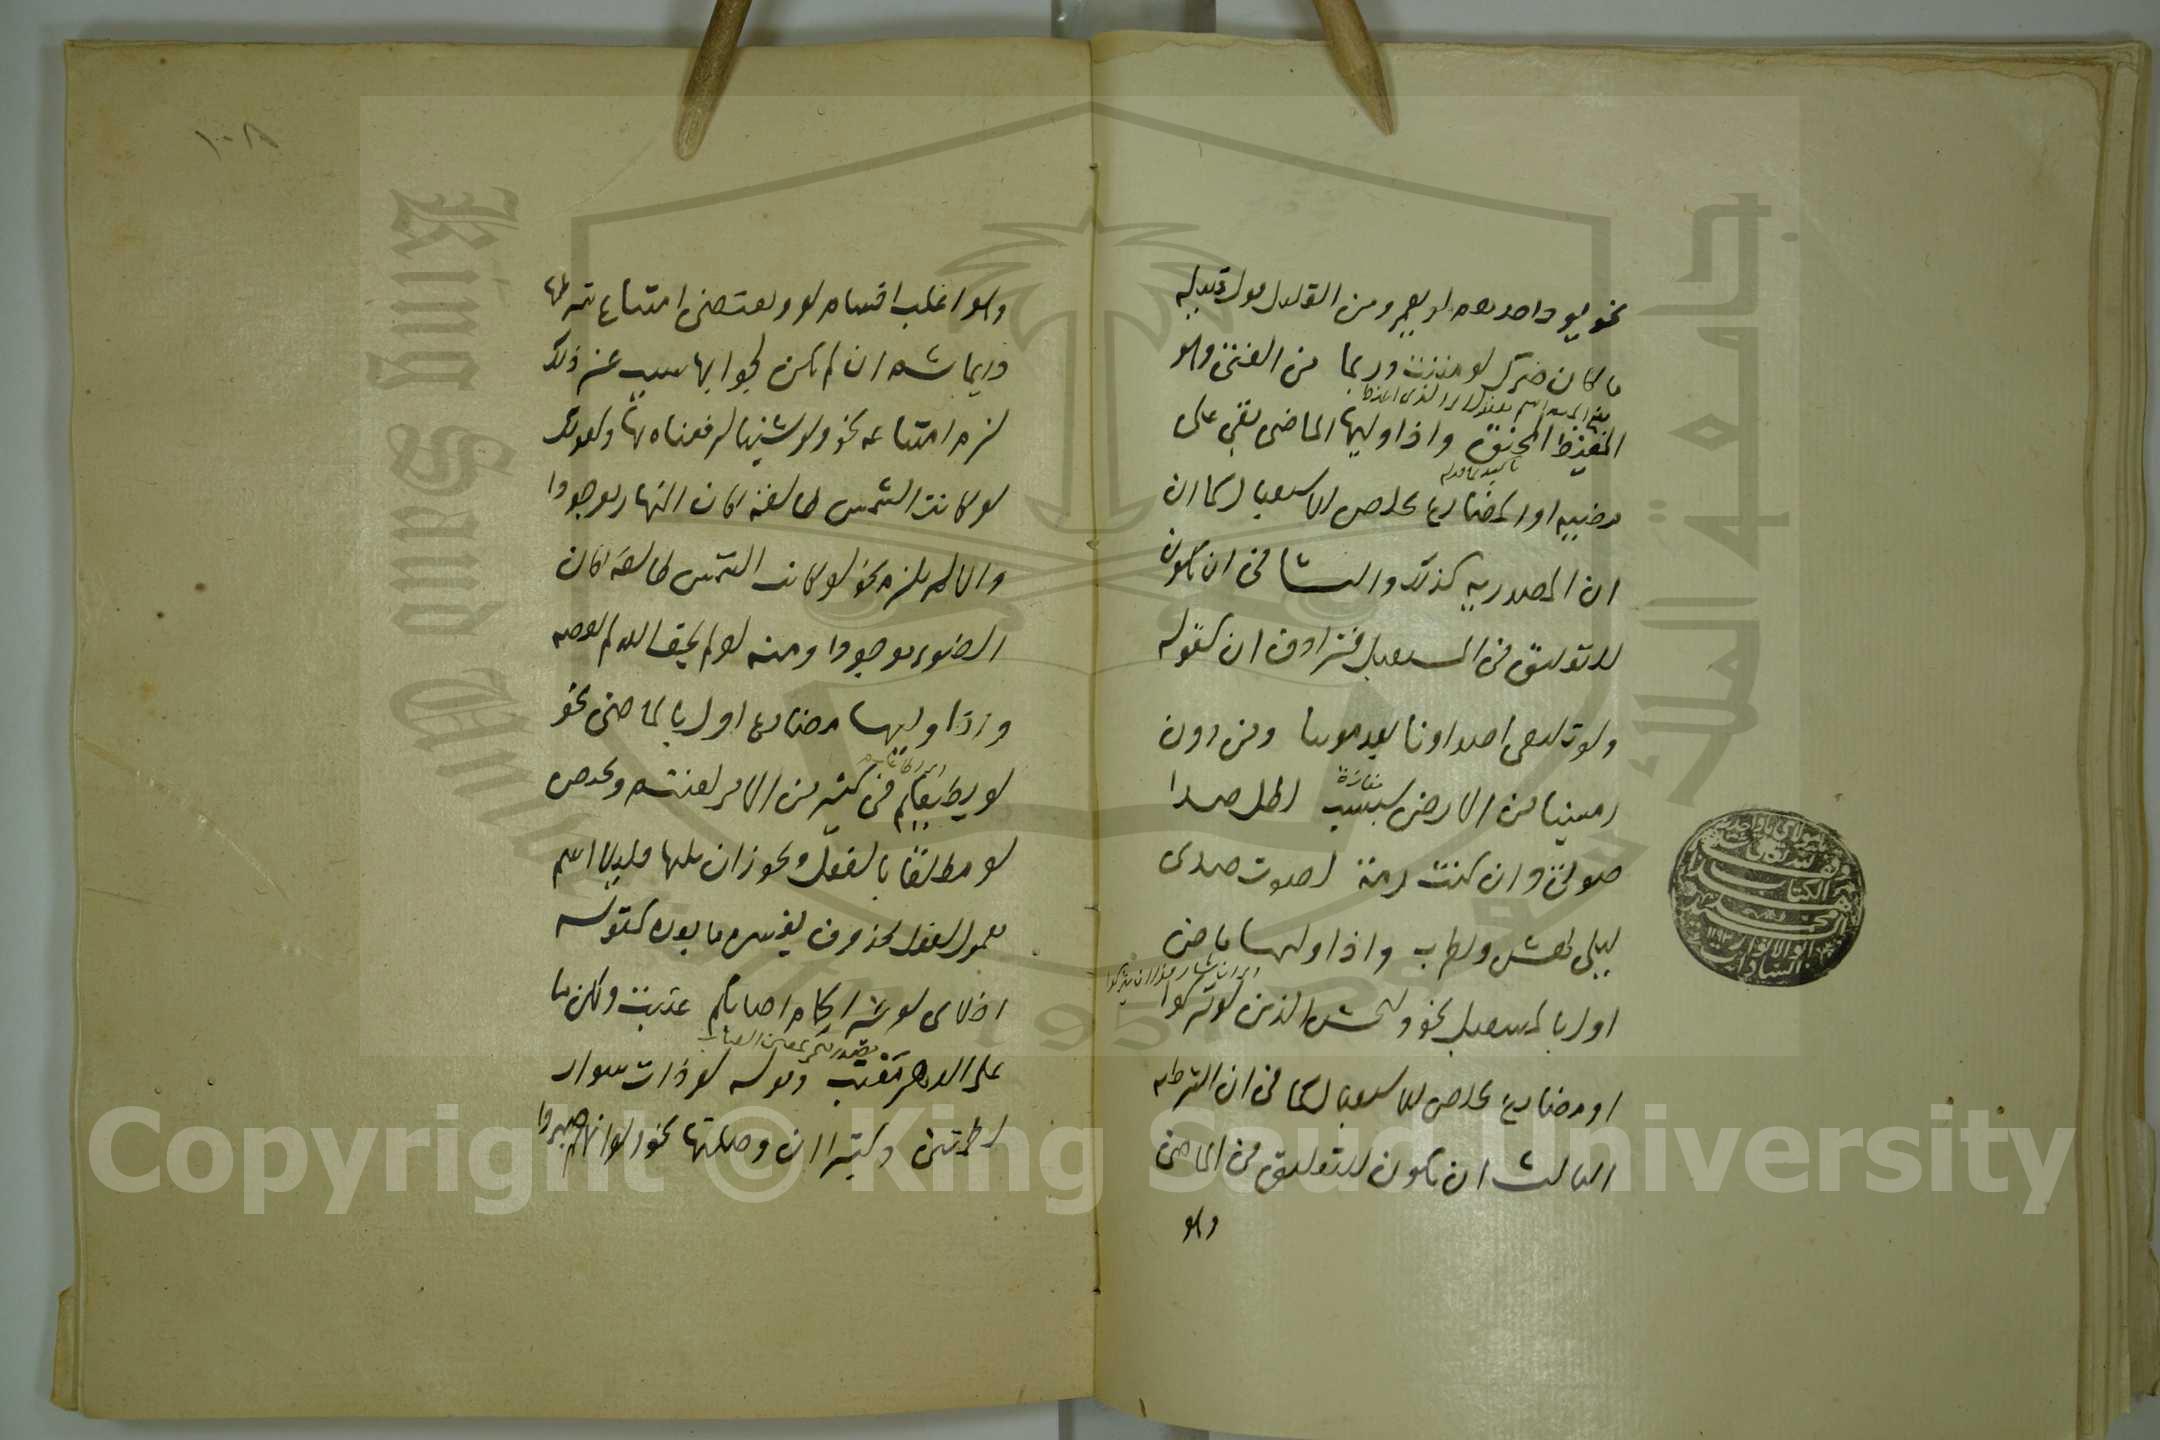 نحو يود احدهم لو يعمر ومن القليل قول قتيلة
ما كان ضرك لو مننت وربما من الفتى وهو
المغيظ المحنق واذا وليها الماضي بقي على
تاكيد لما قبله
مضييه او المضارع تخلص للاستقبال كما ان
ان المصدرية كذلك والثاني ان تكون
للتعليق في المستقبل فترادف ان كقوله
ولو تلتقي اصداؤنا بعد موتنا ومن دون
مفازة
رمسينا من الارض سبسب لظل صدا
صوتي وان كنت رمة لصوت صدى
ليلى يهش ويطرب واذا وليها ماض
اول بالمستقبل نحو وليخش الذين لو تركوا
او مضارع تخلص للاستقبال كما في ان الشرطية
الثالث ان تكون للتعليق في الماضي
وهو
١٠٨
وهو اغلب اقسام لو ويقتضي امتناع شرطها
دايما ثم ان لم يكن لجوابها سبب غير ذلك
لزم امتناعه نحو ولو شئنا لرفعناه بها وكقولك
لو كانت الشمس طالعة كان النهار موجودا
والا لم يلزم نحو لو كانت الشمس طالعة كان
الضوء موجودا ومنه لو لم يخف الله لم يعصه
واذا وليها مضارع اول بالماضي نحو
لو يطيعكم في كثير من الامر لعنتم وتختص
لو مطلقا بالفعل ويجوز ان يليها قليلا اسم
معمول لفعل محذوف يفسره ما بعده كقوله
اخلاي لو غير الحمام اصابكم عتبت ولكن ما
على الدهر معتب وقوله لو ذات سوار
لطمتني وكثيرا ان وصلتها نحو ولو انهم صبروا
Copyright © King Saud University
King Saud University
جامعة الملك سعود
1957